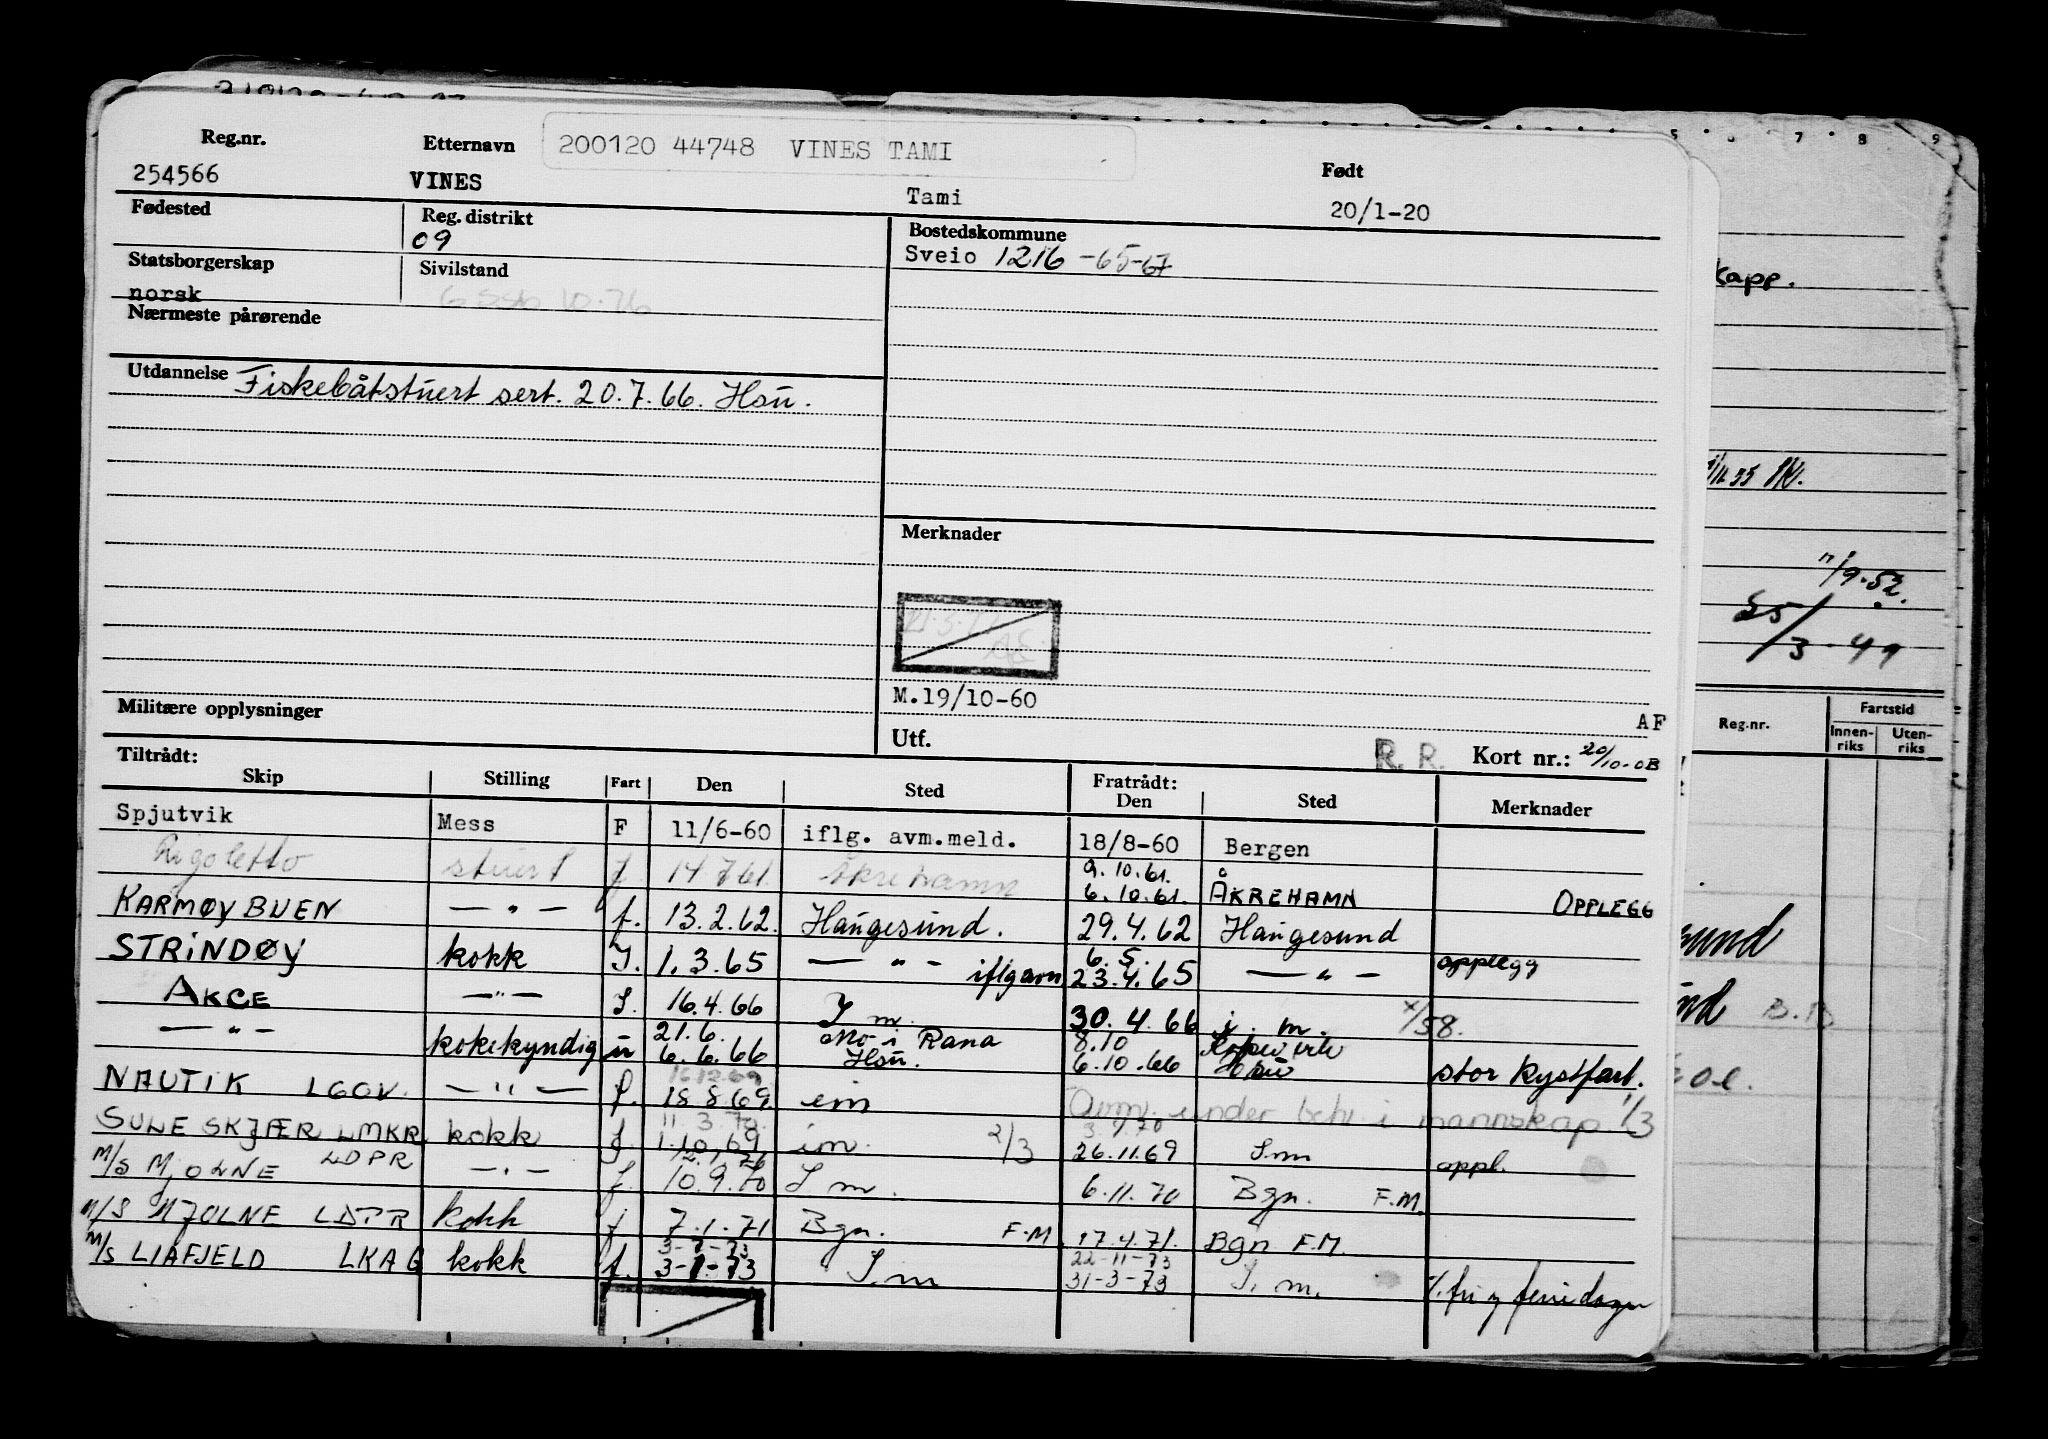 Reg.nr. Etternavn 200120 44748 VINES TAMI Født
254566 VINES Tami 20/1-20
Fødested Reg. distrikt Bostedskommune
09 Sveio 1216 -65-67
Statsborgerskap Sivilstand
norsk
Nærmeste pårørende
Utdannelse Fiskebåtstuert sert. 20.7.66. Hsu.
Merknader
M.19/10-60
Militære opplysninger AF
Utf. R. R. Kort nr.: 20/10-0B
Tiltrådt: Fratrådt:
Skip Stilling Fart Den Sted Den Sted Merknader
Spjutvik Mess F 11/6-60 iflg. avm.meld. 18/8-60 Bergen
9.10.61.
Rigoletto stuert f. 14.7.61. Åkrehamn 6.10.61. ÅKREHAMN OPPLEGG
KARMØYBUEN — " — f. 13.2.62. Haugesund. 29.4.62 Haugesund
6.5.
STRINDØY kokk I. 1.3.65 — " — iflg avm 23.4.65 — " — opplegg
AKCE — " — S. 16.4.66 I m. 30.4.66 i. m. x/58.
21.6. Mo i Rana 8.10
— " — kokekyndig u 6.6.66 Hsu. 6.10.66 Hsu stor kystfart.
16.12.69
NAUTIK LGOV. — " — f. 18.8.69. im Avm. under beh. i mannskap 1/3
11.3.70.
SULE SKJÆR LMKR kokk f. 1.10.69 im. 2/3 26.11.69 I m appl.
M/S MJOLNE LDPR — " — f. 10.9.70 I m. 6.11.70 Bgn. F.M.
M/S MJOLNE LDPR kokk f 7.1.71 Bgn. F.M. 17.4.71. Bgn F.M.
3-7-73 22-11-73
M/S LIAFJELD LKAG kokk f. 3-1-73 I. m 31-3-73 I. m. %. fri og feriedager
kapp.
11/9.52.
25/3-49
Reg.nr. Fartstid
Innen-riks Uten-riks
5 6 7 8 9